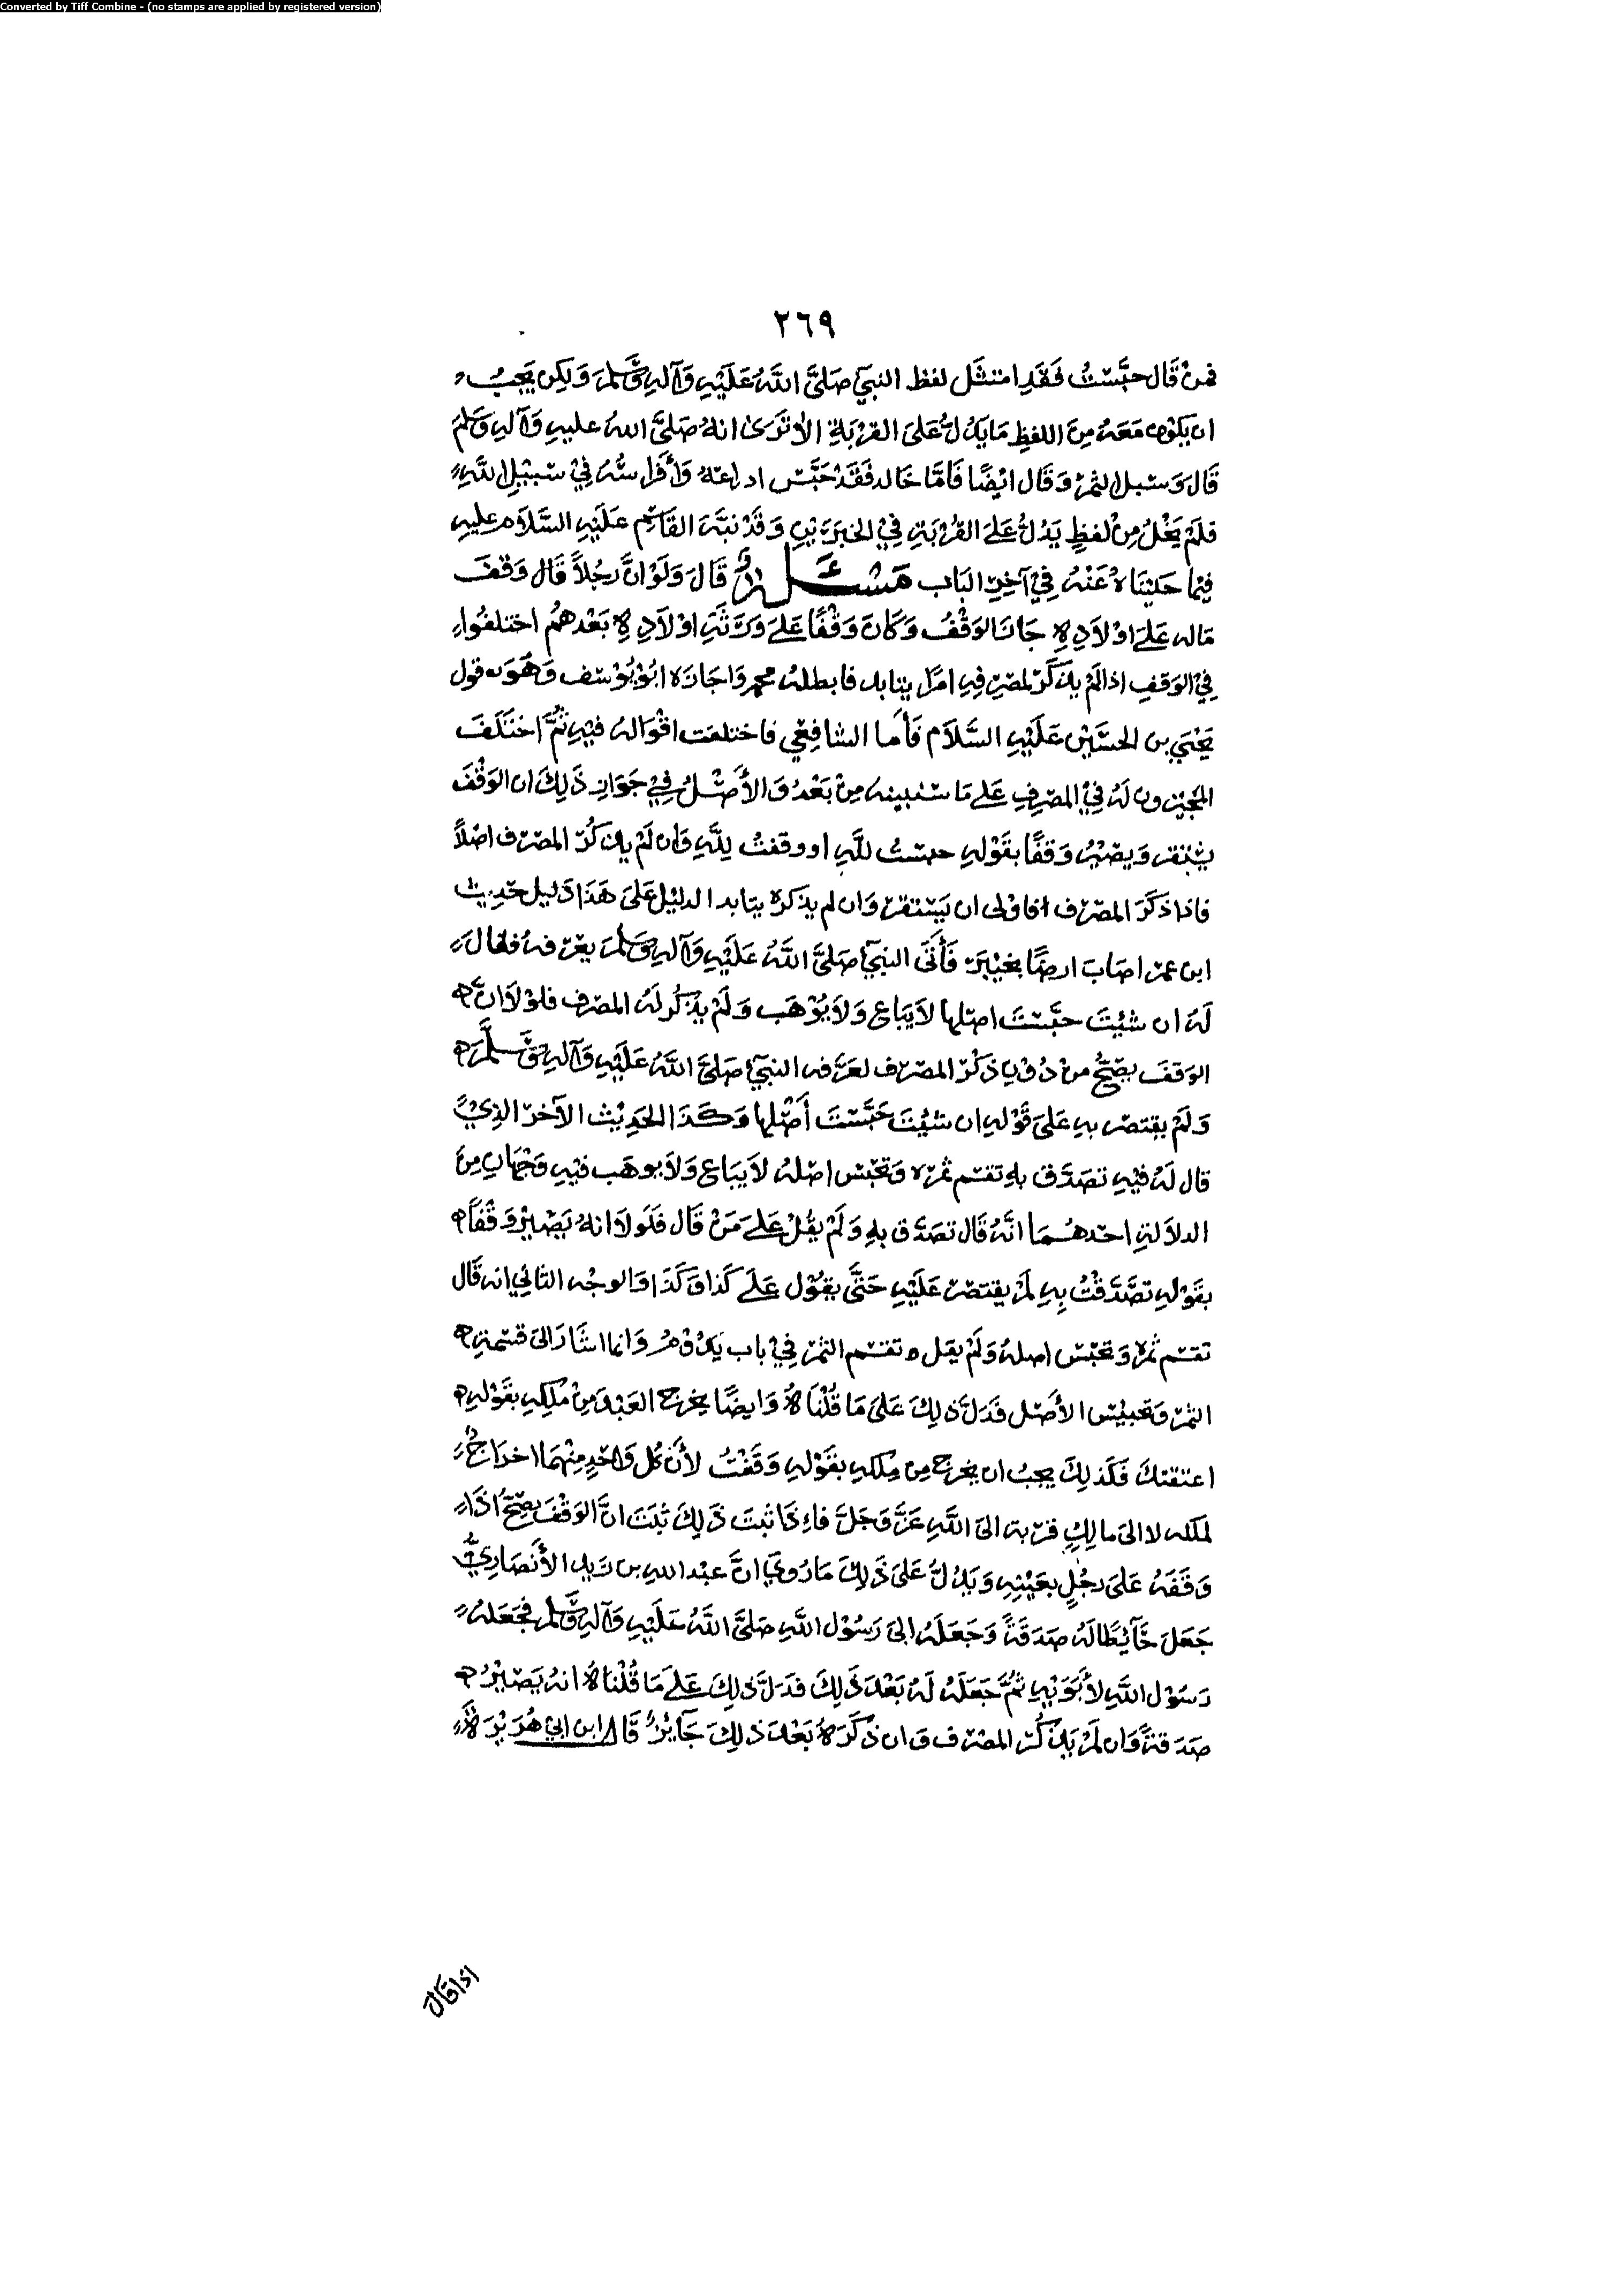 Converted by Tiff Combine - (no stamps are applied by registered version)
٢٦٩
فمن قال حبَّستُ فقد امتثل لفظ النبي صَلىَّ اللَّهُ عَلَيْهِ وَآلهِ وَسَّلمَ وَلكن يجبُ
ان يكون مَعَهُ مِنَ اللفظِ مَا يَدُلُّ عَلىَ القربَةِ الا تَرَى انهُ صَلىَّ اللهُ عليهِ وَآلهِ وَسَلمَ
قَالَ وَسَبل الثمرَ وَقَال ايْضًا فَامَّا خَالد فَقَدْ حَبَّس ادراعَهُ وَأفراسَهُ فِيْ سَبِيْلِ اللهِ
فلَمْ يَخْلُ مِنْ لفظٍ يَدُلُّ عَلىَ القُرْبَةِ فِيْ الخبرَيْنِ وَقَدْ نبَّهَ القَاسِم عَلَيْهِ السَّلاَم عليهِ
فِيْما حَكيْنَاهُ عَنْهُ فِيْ آخِرِ البَاب مَسْئَلة قَالَ وَلَوْ انَّ رَجُلاً قَال وَقفَ
مَاله عَلىَ اوْلاَدِيْ جَازَ الوَقْفُ وَكَانَ وَقْفًا عَلىَ وَرَثَةِ اوْلاَدِيْ بَعْدهُمْ اختلفُوا
فِيْ الوَقفِ اذا لَمْ يذكَر لمصرفهِ امرًا يتابد فابطلهُ محمد وَاجَازَه ابُوْ يُوْسف وَهُوَ قول
يَحْيَى بن الحسَيْن عَلَيْهِ السَّلاَم فَأمَا الشافِعِي فاختلفت اقْوَاله فيْهِ ثُمَّ اختَلَفَ
المجيْزون لَهُ فيْ المصرفِ عَلىَ مَا سَنبينه مِنْ بَعْدُ وَالأَصْلُ فِيْ جَوَازِ ذَلِكَ ان الوَقْفَ
يَسْتقر وَيصْيرُ وَقفًا بقَوْلهِ حبسْتُ للَّهِ او وقفتُ لِلَّهِ وَان لَمْ يذكر المصرف اصْلاً
فاذا ذكَرَ المصرف كان اوْلى ان يَسْتقر وَان لم يذكره يتابد الدليْل عَلىَ هَذا دَليل حَدِيث
ابن عمَر اصَابَ ارضًا بخيْبَر فَأتَى النبيَّ صَلىَّ اللَّهُ عَلَيْهِ وَآلهِ وَسَّلمَ يعرّفهُ فقَال
لَهُ ان شئِتَ حبَّسْتَ اصْلها لاَ يَباع وَلاَ يوْهَب وَلَمْ يذكُر لَهُ المصرف فلوْلاَ انَّ
الوَقفَ يصِحُّ من دُوْنِ ذكْر المصرف لعَرَّفه النبيُّ صَلىَّ اللَّهُ عَلَيْهِ وَآلهِ وَسَلَّمَ
وَلَمْ يقتصر بهِ عَلىَ قَوْلهِ ان شئِتَ حَبَّسْتَ أصْلها وَكَذَا الحَدِيْث الآخر الذِيْ
قال لَهُ فيْهِ تصَدَّق بهِ تقسم ثمره وَتحبّس اصْلهُ لاَ يبَاع وَلاَ يوهَب فيْهِ وَجْهَانِ مِنَ
الدلاَلةِ احدهُمَا انَّهُ قَال تصَدَّق بهِ وَلَمْ يقُلْ عَلىَ مَنْ قَال فَلَولاَ انهُ يَصِيْر وَقْفًا
بقَوْلهِ تصَدَّقْتُ بِهِ لَمْ يقتصر عَلَيْهِ حَتىَّ يقُوْل عَلىَ كَذا وَكَذَا وَالوجْه الثاني انه قَال
تقسَم ثمره وَتحبّس اصلهُ وَلَمْ يقل تقسم الثمر فِيْ باب يَدُوْمُ وَانما اشَارَ الىَ قسْمةِ
الثمَر وَتحبيْس الأَصْل فَدَلَّ ذلِكَ عَلىَ مَا قُلْنَاهُ وَايضًا يخرج العَبْد مِنْ مُلكِهِ بقَوْلهِ
اعتقتكَ فَكَذلِكَ يَجبُ ان يخرج مِن مِلكهِ بقَوْلهِ وَقَفْتُ لأنَّ كُل وَاحِدٍ مِنْهمَا اخراجٌ
لملكه لا الىَ مالِكٍ قربة الىَ اللَّهِ عَزَّ وَجَلَّ فاءِذَا ثبتَ ذَلِكَ ثبَتَ انَّ الوَقْفَ يصِحُّ اذَا
وَقفَهُ عَلىَ رجُلٍ بعَيْنِهِ وَيَدُلُّ عَلىَ ذَلِكَ مَا رُوِيَ انَّ عبْد اللهِ بن زَيد الأَنصَاريَّ
جَعَلَ حَآئِطًا لَهُ صَدَقَةً وَجَعَلَهُ الىَ رَسُوْل اللَّهِ صَلىَّ اللَّهُ عَلَيْهِ وَآلهِ وَسَّلمَ فجَعَلهُ
رَسُوْل اللَّهِ لأَبَوَيْهِ ثُمَّ جَعَلَهُ لَهُ بَعْدَ ذَلِكَ فدَلَّ ذلِكَ عَلىَ مَا قُلْنَاهُ انهُ يَصْيْرُ
صَدَقةً وَان لَمْ يذكُر المصْرَف وَان ذكَرَهُ بَعْدَ ذلِكَ جَآئِزٌ قَال ابن ابيْ هُرَيْرَةَ
اذا قَالَ